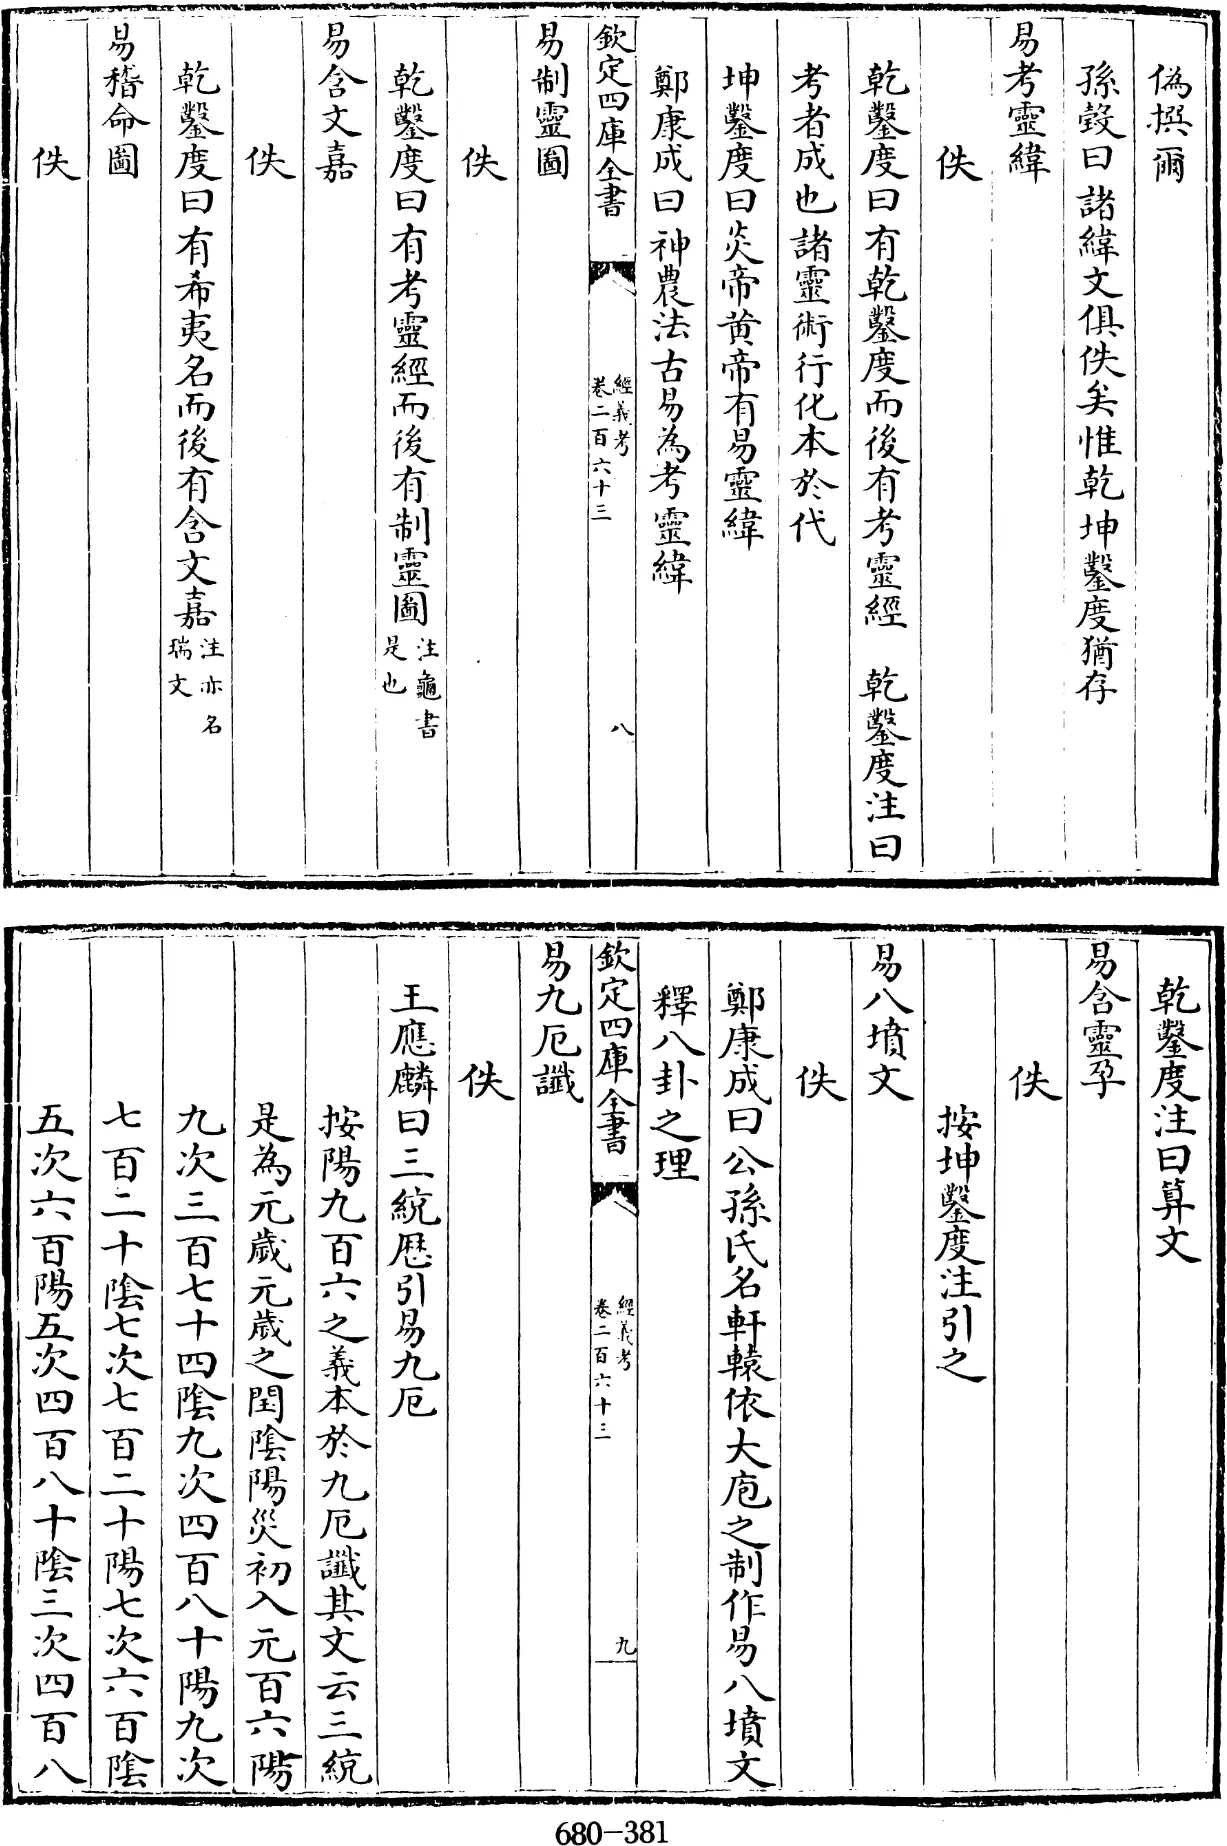 偽撰爾
孫瑴曰諸緯文俱佚矣惟乾坤鑿度猶存
易考靈緯
佚
乾鑿度曰有乾鑿度而後有考靈經　乾鑿度注曰
考者成也諸靈術行化本於代
坤鑿度曰炎帝黃帝有易靈緯
鄭康成曰神農法古易為考靈緯
欽定四庫全書
經義考
卷二百六十三
八
易制靈圖
佚
乾鑿度曰有考靈經而後有制靈圖注龜書
是也
易含文嘉
佚
乾鑿度曰有希夷名而後有含文嘉注亦名
瑞文
易稽命圖
佚
乾鑿度注曰算文
易含靈孕
佚
按坤鑿度注引之
易八墳文
佚
鄭康成曰公孫氏名軒轅依大庖之制作易八墳文
釋八卦之理
欽定四庫全書
經義考
卷二百六十三
九
易九厄讖
佚
王應麟曰三統厯引易九厄
按陽九百六之義本於九厄讖其文云三統
是為元歲元歲之閏陰陽災初入元百六陽
九次三百七十四陰九次四百八十陽九次
七百二十陰七次七百二十陽七次六百陰
五次六百陽五次四百八十陰三次四百八
680-381